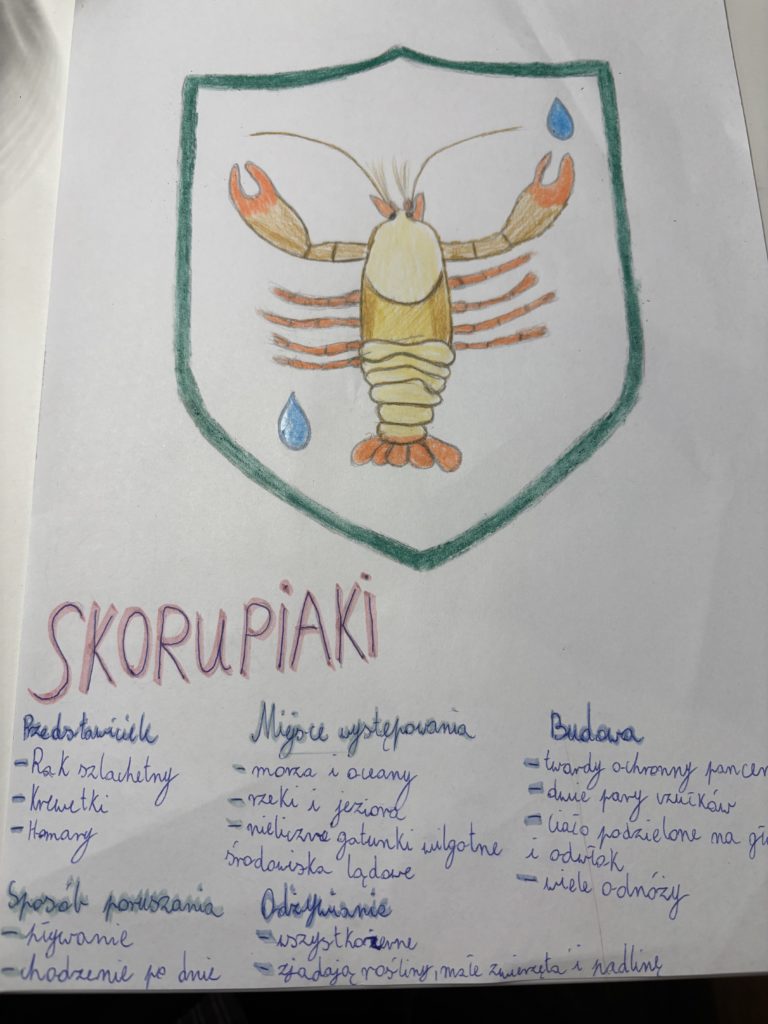 SKORUPiAKi
Przedstawiciele
- Rak szlachetny
- Krewetki
- Homary
Miejsce występowania
- morza i oceany
- rzeki i jeziora
- nieliczne gatunki wilgotne
środowiska lądowe
Budowa
- twardy ochronny pancer
- dwie pary czułków
- ciało podzielone na gł
i odwłok
- wiele odnóży
Sposób poruszania
- pływanie
- chodzenie po dnie
Odżywianie
- wszystkożerne
- zjadają rośliny, małe zwierzęta i padlinę